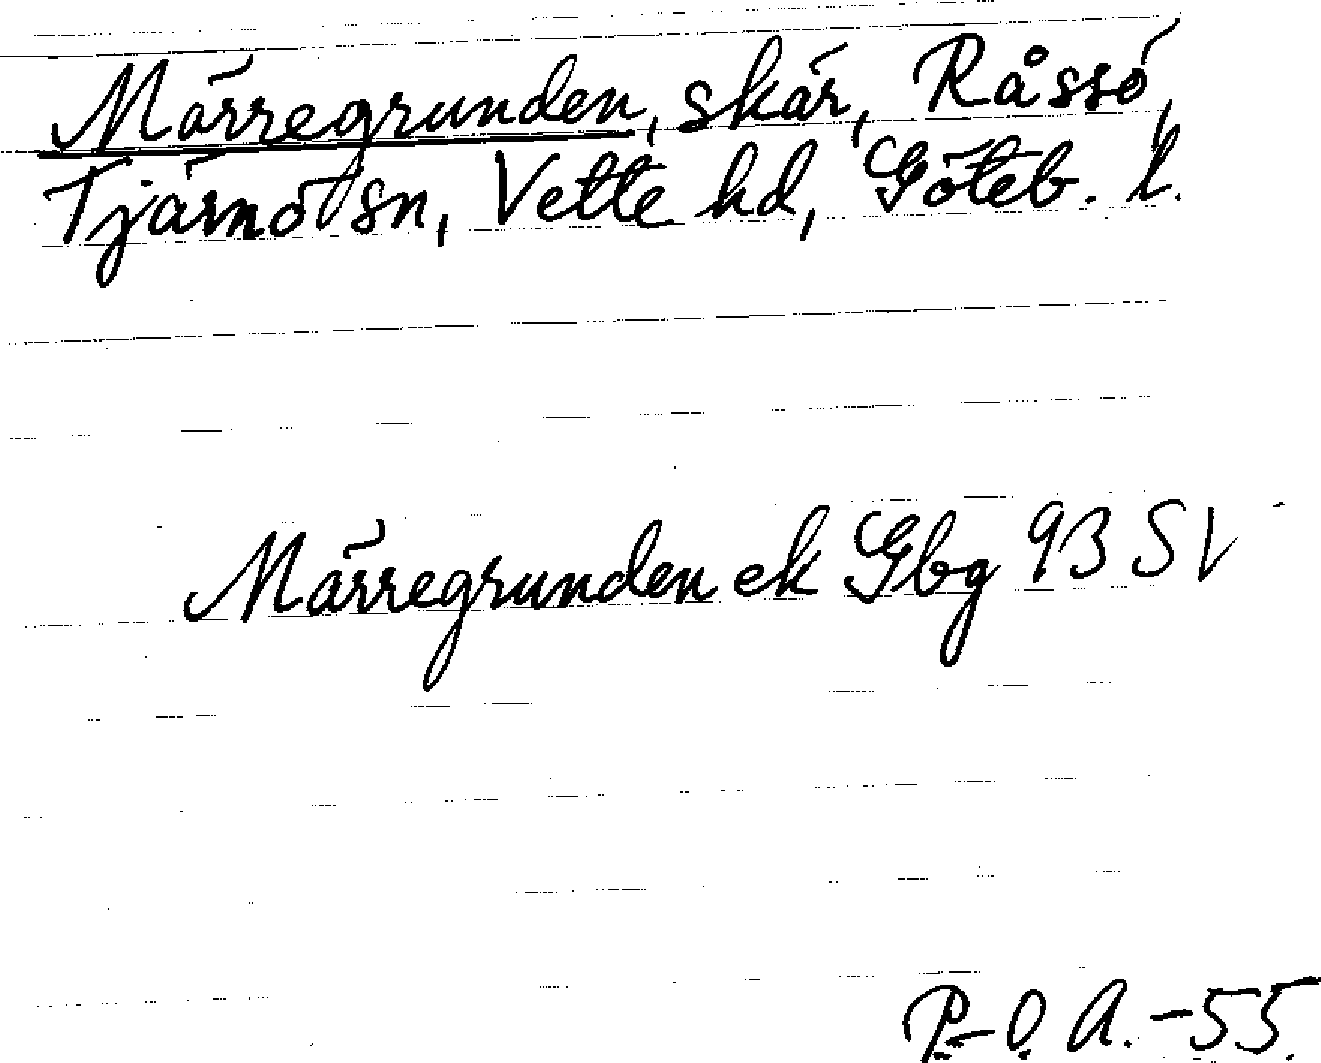 Märregrunden, skär, Råssö,
Tjärnö sn, Vette hd, Göteb. l.
Märregrunden ek Gbg 93 SV
P-O. A. -55.